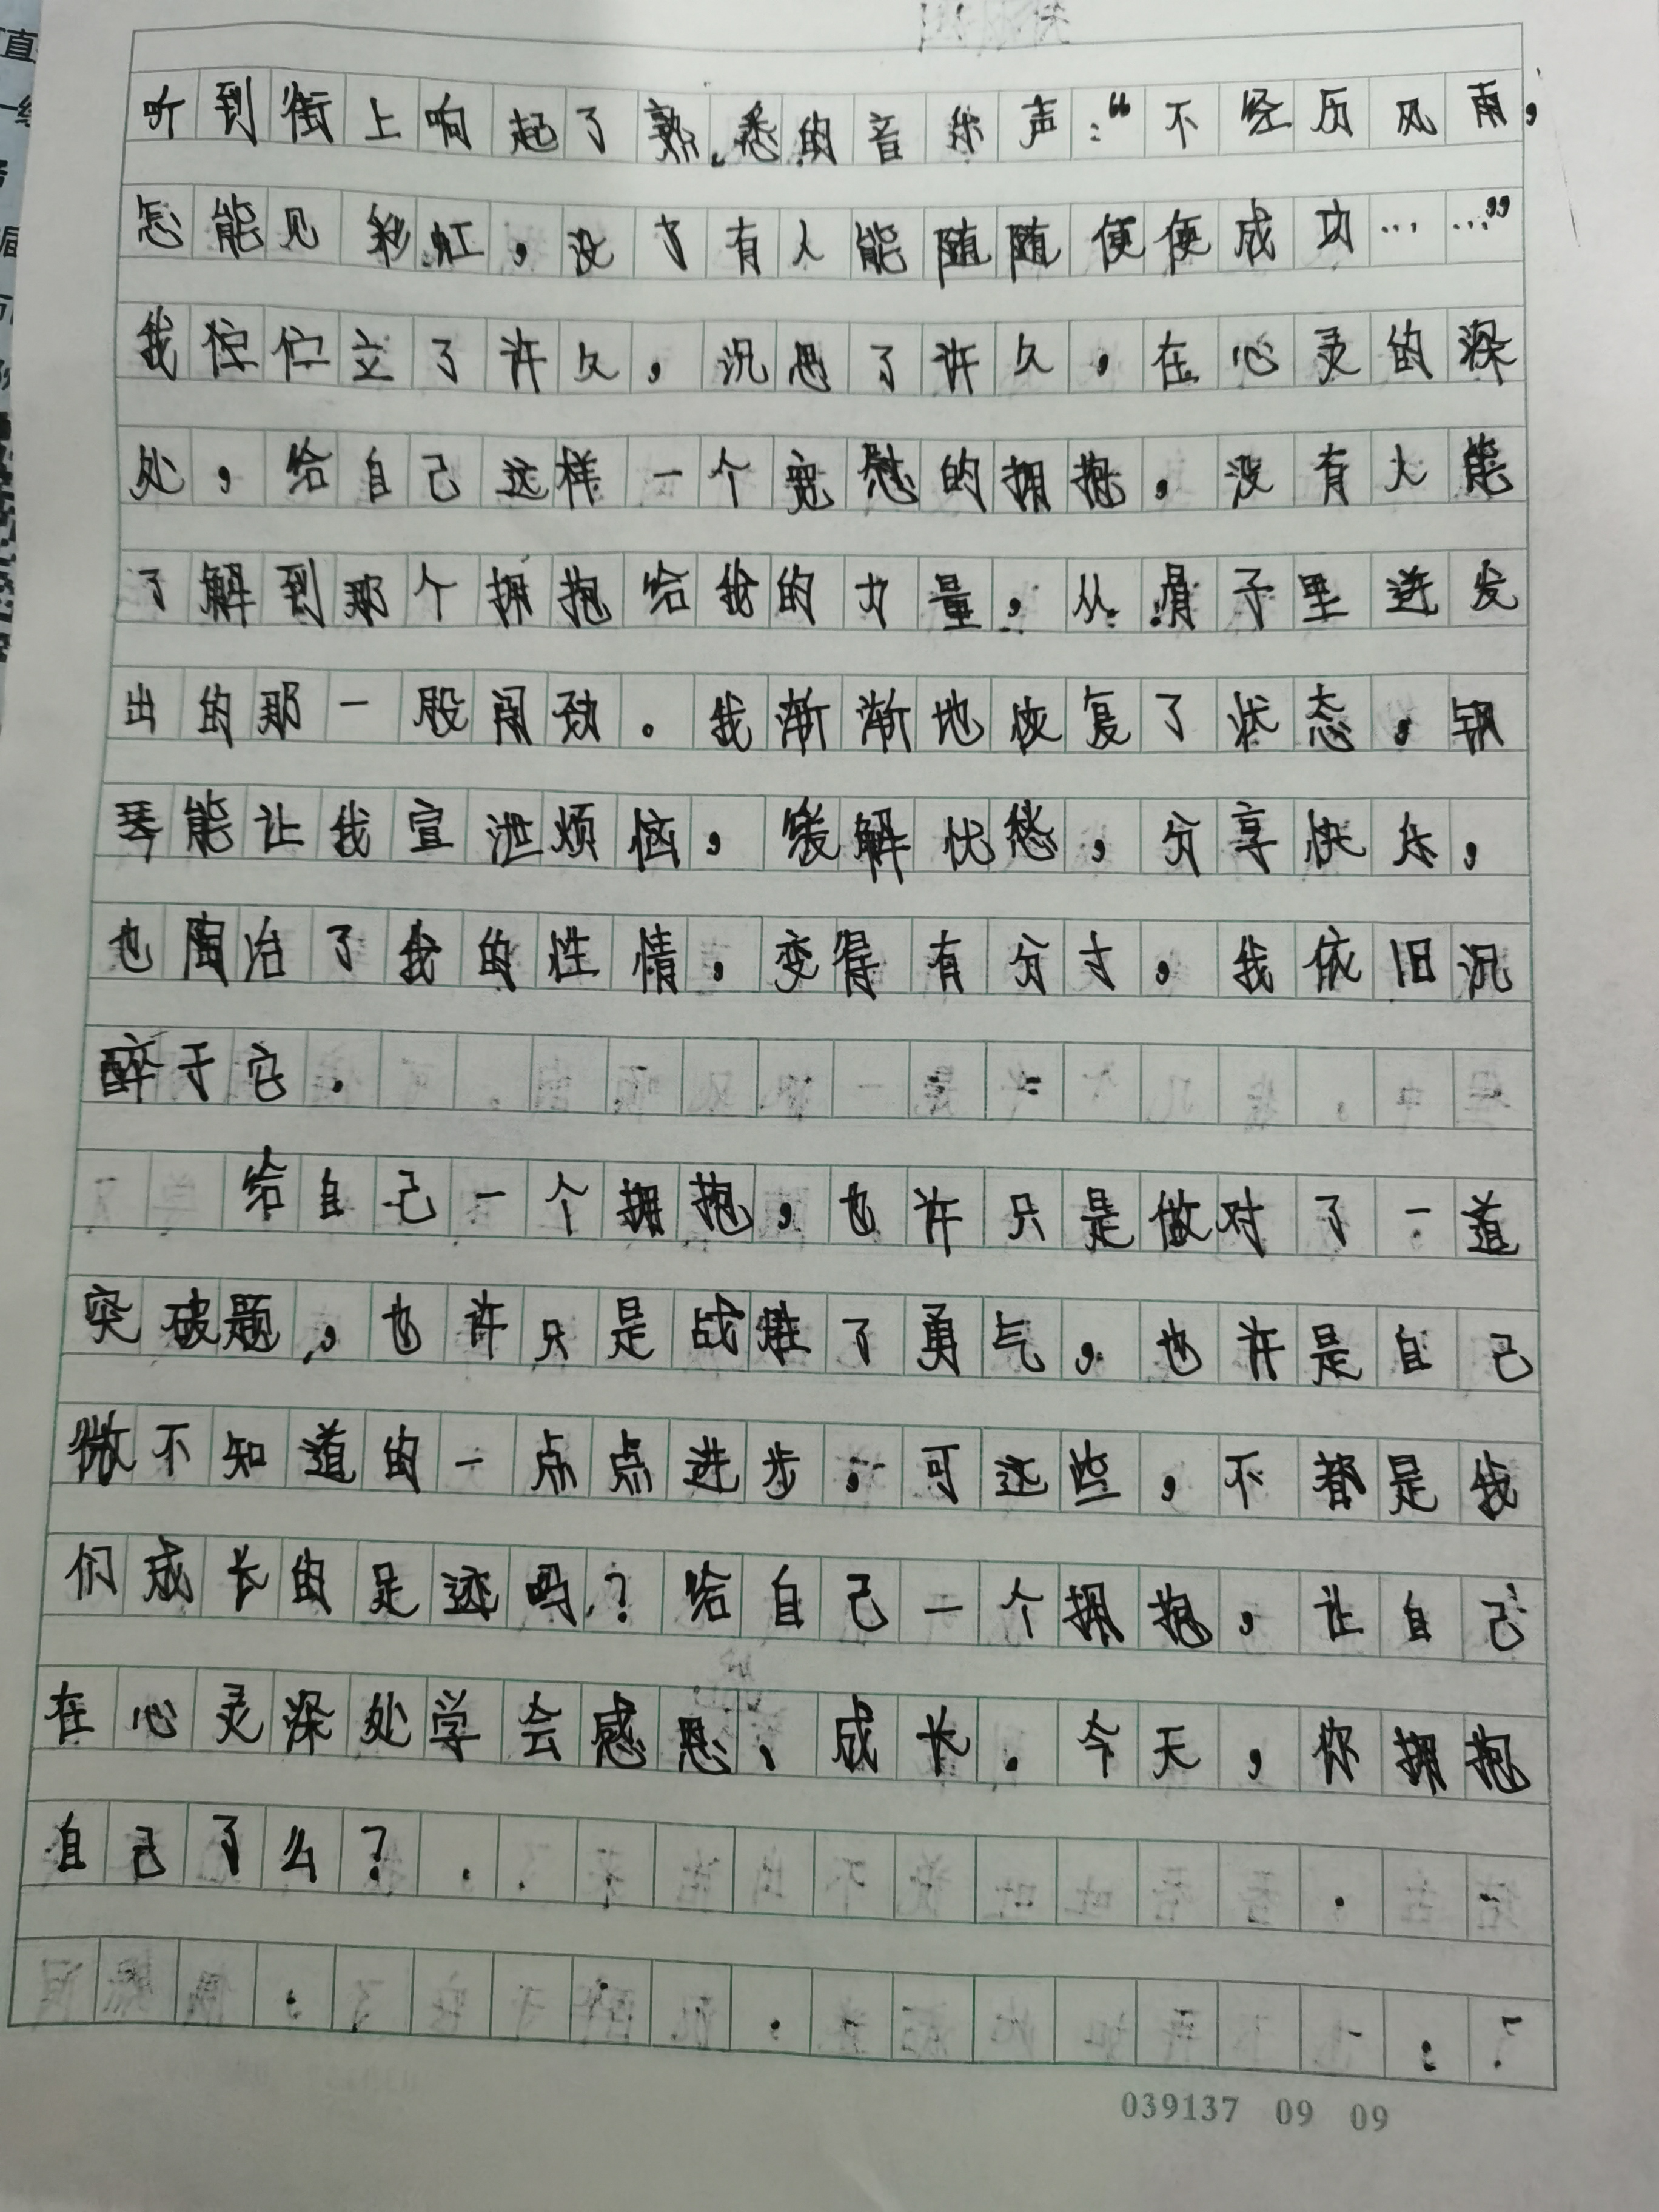 听到街上响起了熟悉的音乐声:“不经历风雨,
怎能见彩虹,没了有人能随随便便成功……”
我伫立了许久,沉思了许久,在心灵的深
处,给自己这样一个宽慰的拥抱.没有人能
了解到那个拥抱给我的力量,从骨子里迸发
出的那一股闯劲。我渐渐地恢复了状态,钢
琴能让我宣泄烦恼,缓解忧愁,分享快乐,
也陶冶了我的性情,变得有分寸,我依旧沉
醉于它.
给自己一个拥抱,也许只是做对了一道
突破题,也许只是战胜了勇气,也许是自己
微不知道的一点点进步,可这些,不都是我
们成长的足迹吗?给自己一个拥抱,让自己
在心灵深处学会感恩、成长.今天,你拥抱
自己了么?
039137 09 09